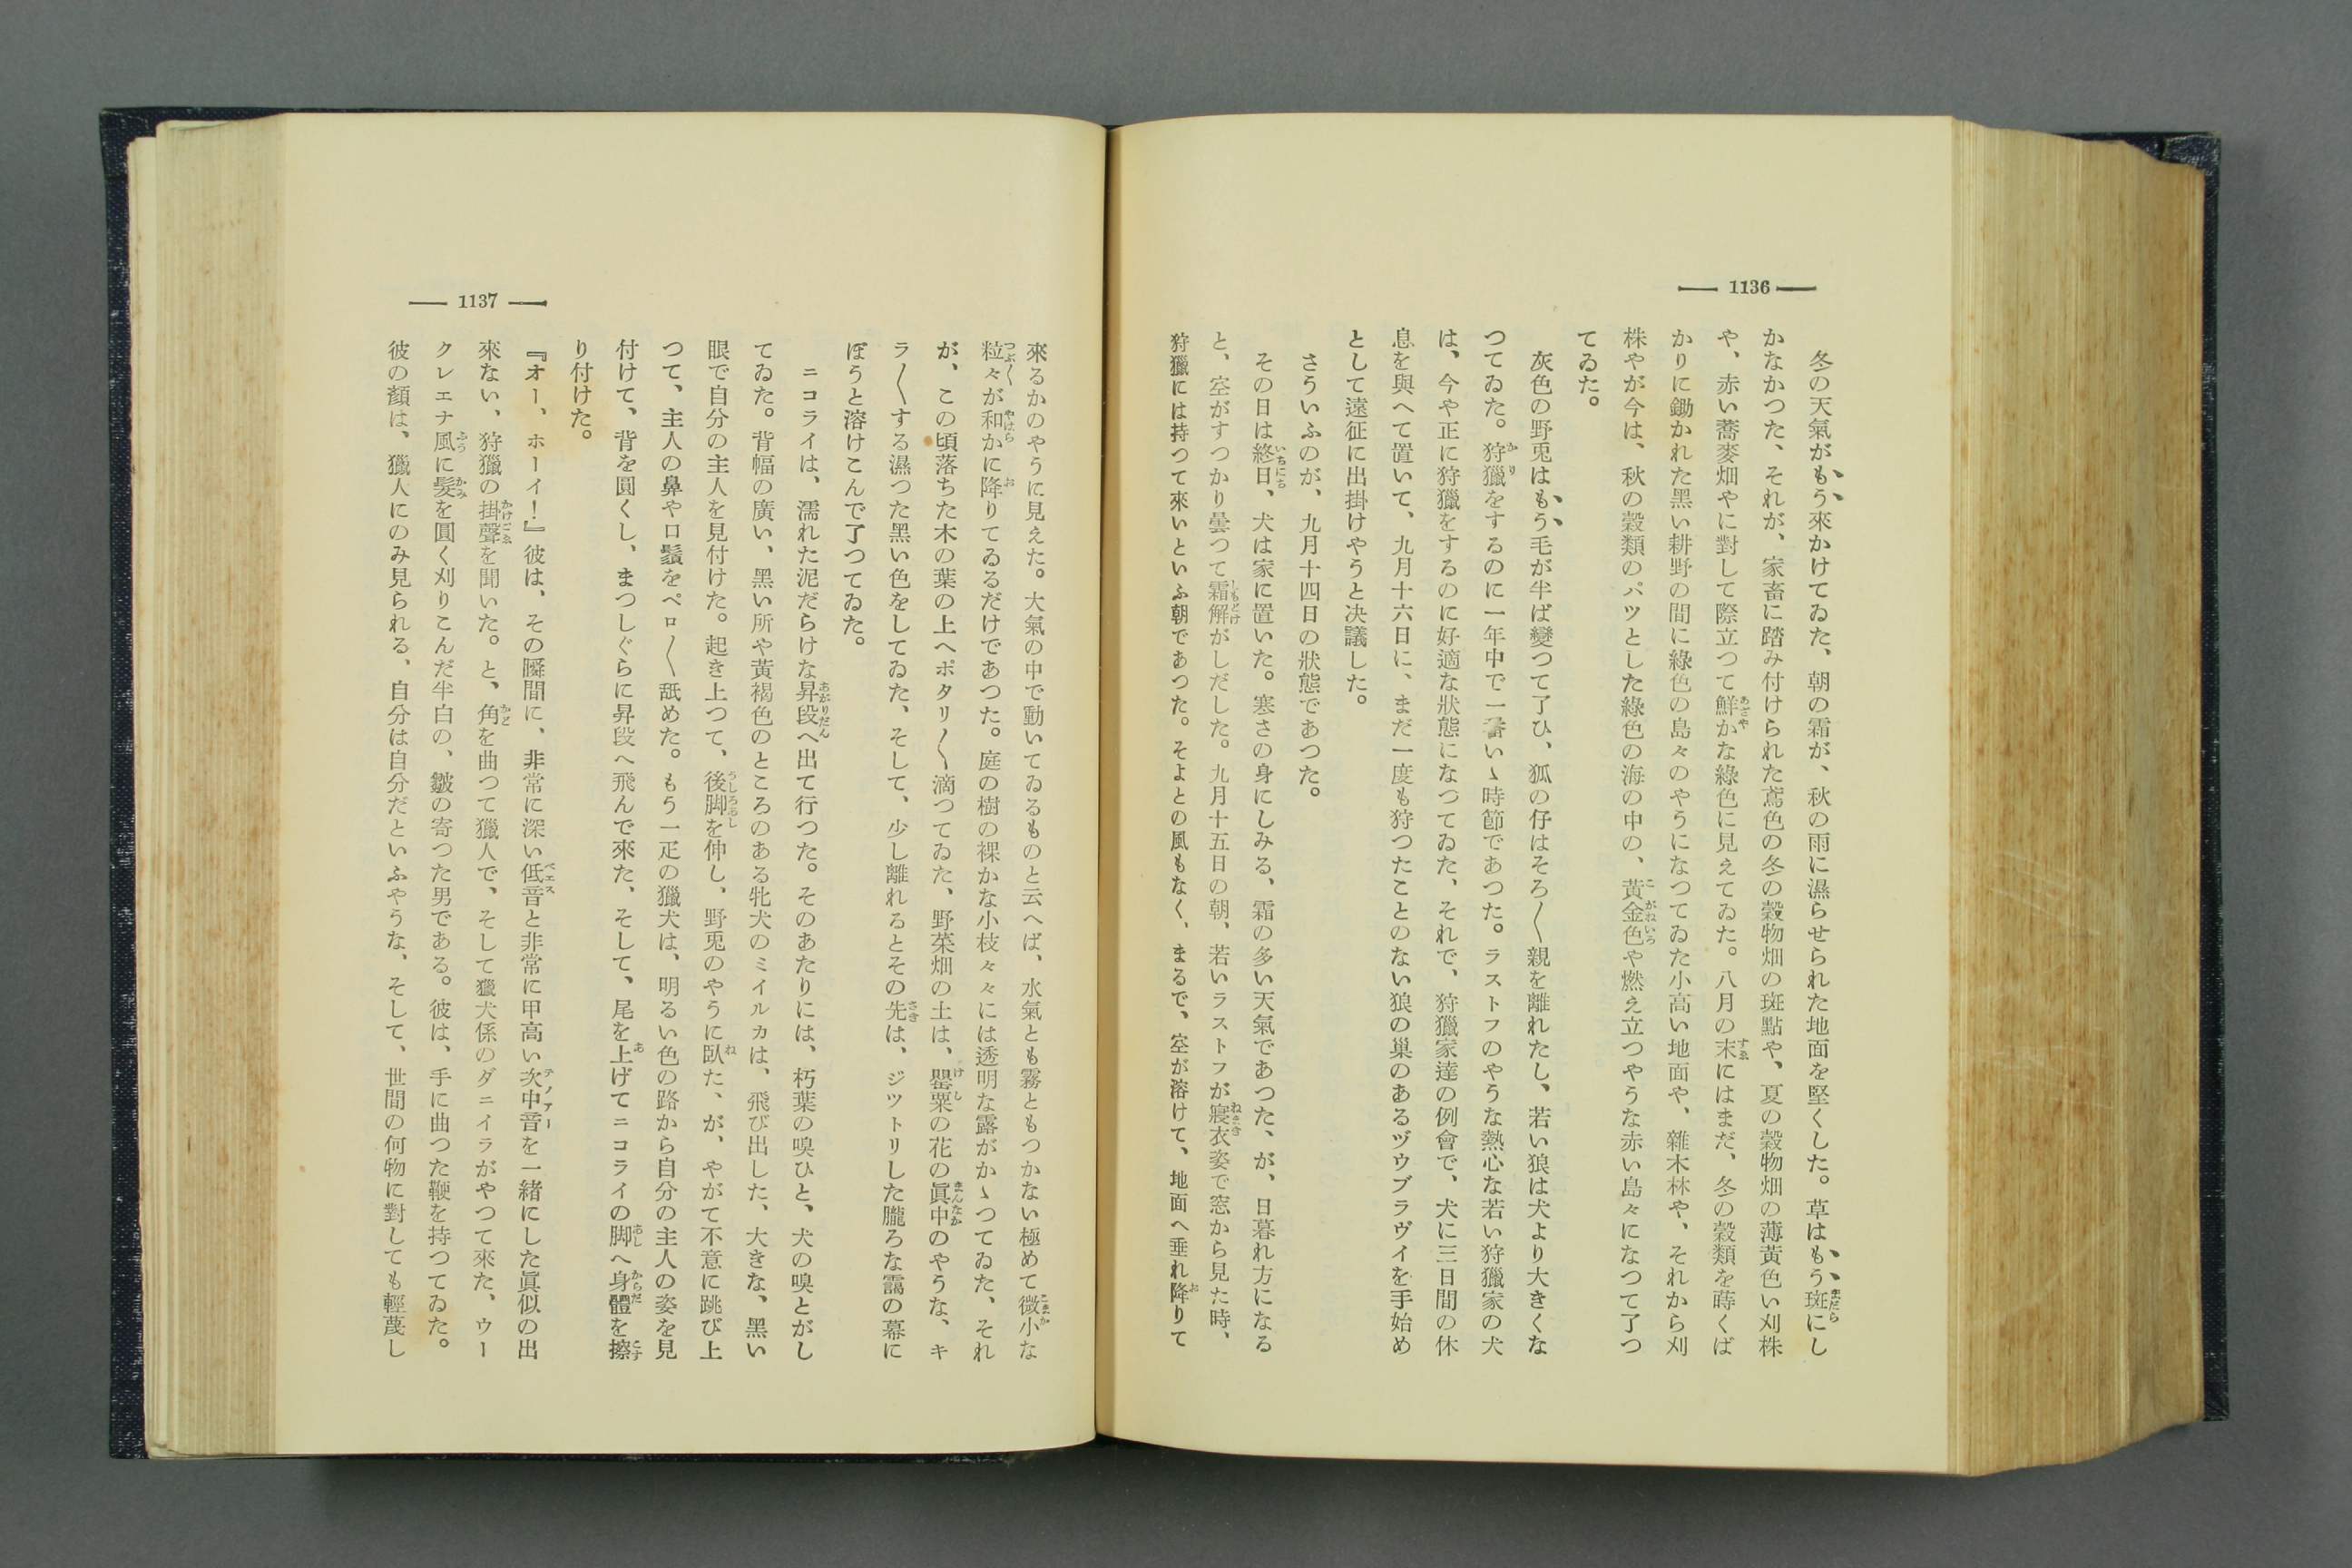 1136
冬の天氣がもう來かけてゐた、朝の霜が、秋の雨に濕らせられた地面を堅くした。草はもう斑にし
かなかつた、それが、家畜に踏み付けられた鳶色の冬の穀物畑の斑點や、夏の穀物畑の薄黄色い刈株
や、赤い蕎麥畑やに對して際立つて鮮かな綠色に見えてゐた。八月の末にはまだ、冬の穀類を蒔くば
かりに鋤かれた黑い耕野の間に綠色の島々のやうになつてゐた小高い地面や、雜木林や、それから刈
株やが今は、秋の穀類のパツとした綠色の海の中の、黃金色や燃え立つやうな赤い島々になつて了つ
てゐた。
灰色の野兎はもう毛が半ば變つて了ひ、狐の仔はそろ〳〵親を離れたし、若い狼は犬より大きくな
つてゐた。狩獵をするのに一年中で一番いゝ時節であつた。ラストフのやうな熱心な若い狩獵家の犬
は、今や正に狩獵をするのに好適な狀態になつてゐた、それで、狩獵家達の例會で、犬に三日間の休
息を與へて置いて、九月十六日に、まだ一度も狩つたことのない狼の巢のあるヅウブラヴイを手始め
として遠征に出掛けやうと決議した。
さういふのが、九月十四日の狀態であつた。
その日は終日、犬は家に置いた。寒さの身にしみる、霜の多い天氣であつた、が、日暮れ方になる
と、空がすつかり曇つて霜解がしだした。九月十五日の朝、若いラストフが寢衣姿で窓から見た時、
狩獵には持つて來いといふ朝であつた。そよとの風もなく、まるで、空が溶けて、地面へ垂れ降りて
1137
來るかのやうに見えた。大氣の中で動いてゐるものと云へば、水氣とも霧ともつかない極めて微小な
粒々が和かに降りてゐるだけであつた。庭の樹の裸かな小枝々々には透明な露がかゝつてゐた、それ
が、この頃落ちた木の葉の上へポタリ〳〵滴つてゐた、野菜畑の土は、罌粟の花の眞中のやうな、キ
ラ〳〵する濕つた黑い色をしてゐた、そして、少し離れるとその先は、ジツトリした朧ろな靄の幕に
ぼうと溶けこんで了つてゐた。
ニコライは、濡れた泥だらけな昇段へ出て行つた。そのあたりには、朽葉の嗅ひと、犬の嗅とがし
てゐた。背幅の廣い、黑い所や黃褐色のところのある牝犬のミイルカは、飛び出した、大きな、黑い
眼で自分の主人を見付けた。起き上つて、後脚を伸し、野兎のやうに臥た、が、やがて不意に跳び上
つて、主人の鼻や口鬚をペロ〳〵舐めた。もう一疋の獵犬は、明るい色の路から自分の主人の姿を見
付けて、背を圓くし、まつしぐらに昇段へ飛んで來た、そして、尾を上げてニコライの脚へ身體を擦
り付けた。
『オー、ホーイ！』彼は、その瞬間に、非常に深い低音と非常に甲高い次中音を一緒にした眞似の出
來ない、狩獵の掛聲を聞いた。と、角を曲つて獵人で、そして獵犬係のダニイラがやつて來た、ウー
クレエナ風に髮を圓く刈りこんだ半白の、皺の寄つた男である。彼は、手に曲つた鞭を持つてゐた。
彼の顏は、獵人にのみ見られる、自分は自分だといふやうな、そして、世間の何物に對しても輕蔑し